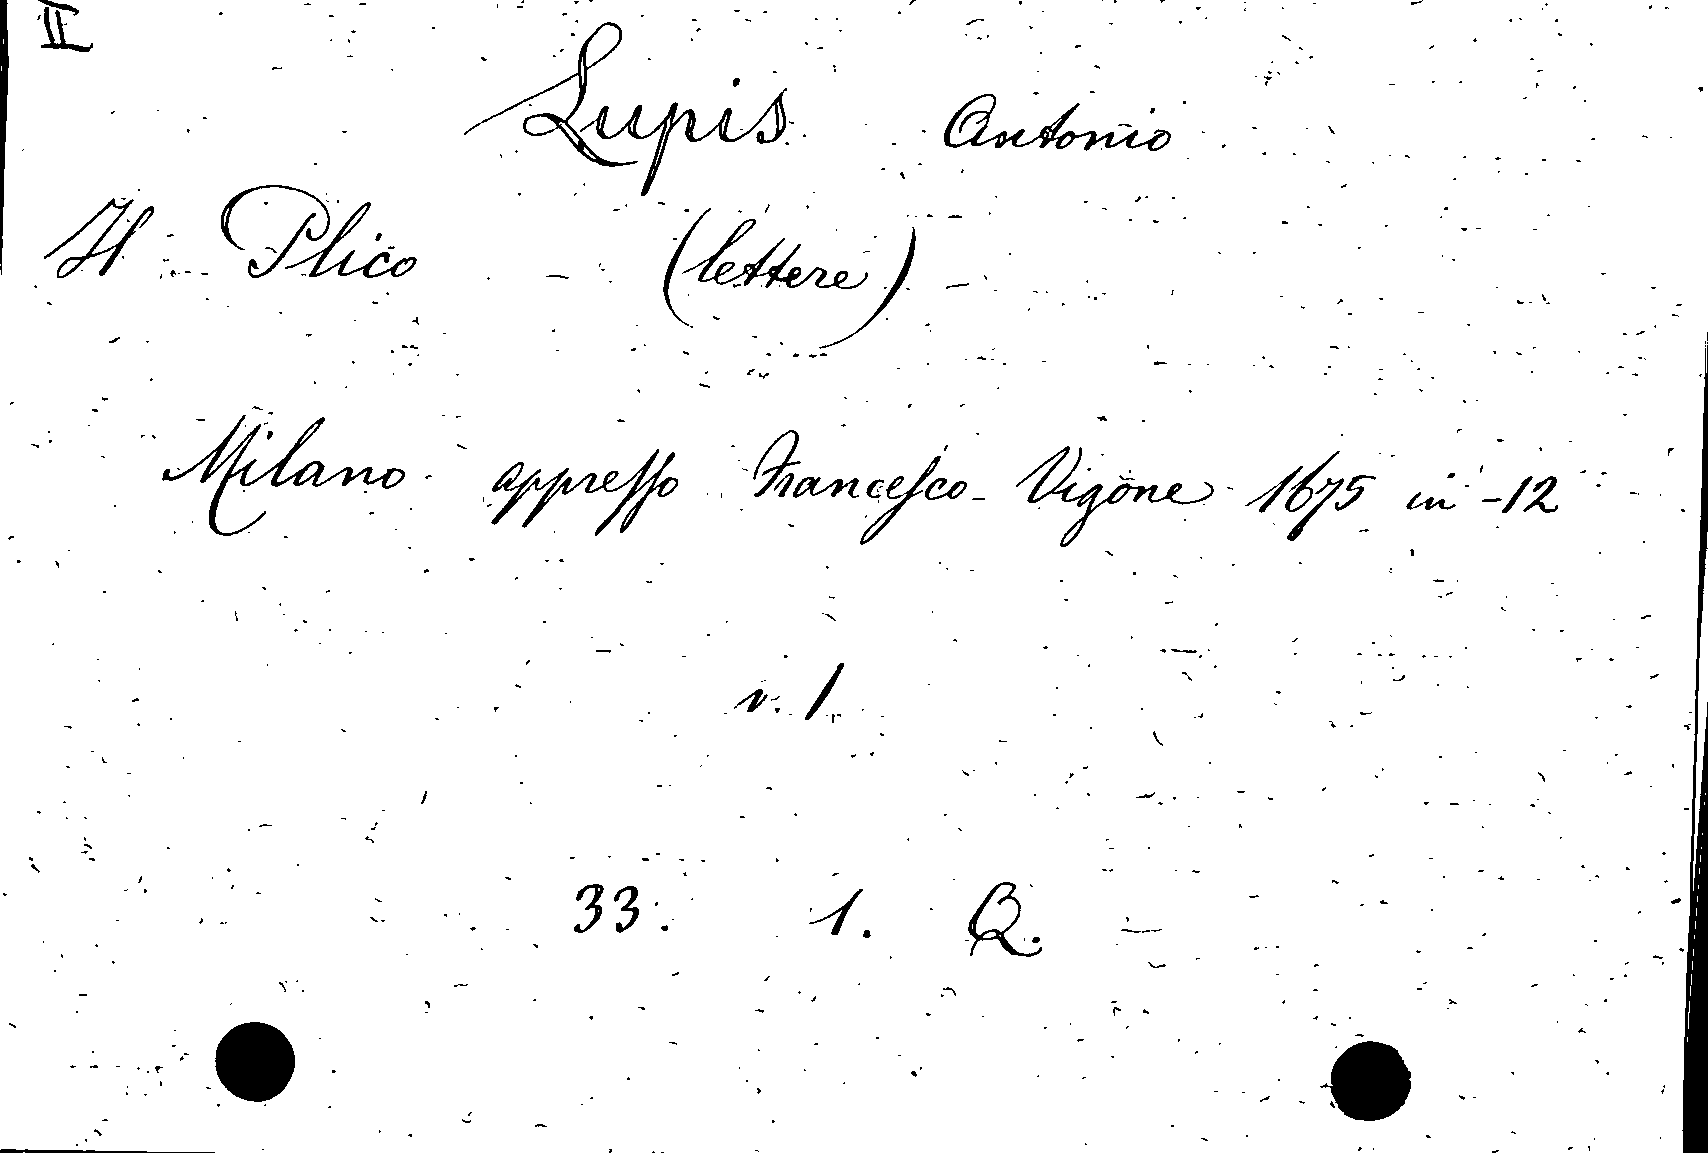 II
Lupis Antonio
Il Plico (lettere)
Milano appresso Francesco Vigone 1675 in-12
v. 1.
33. 1. Q.